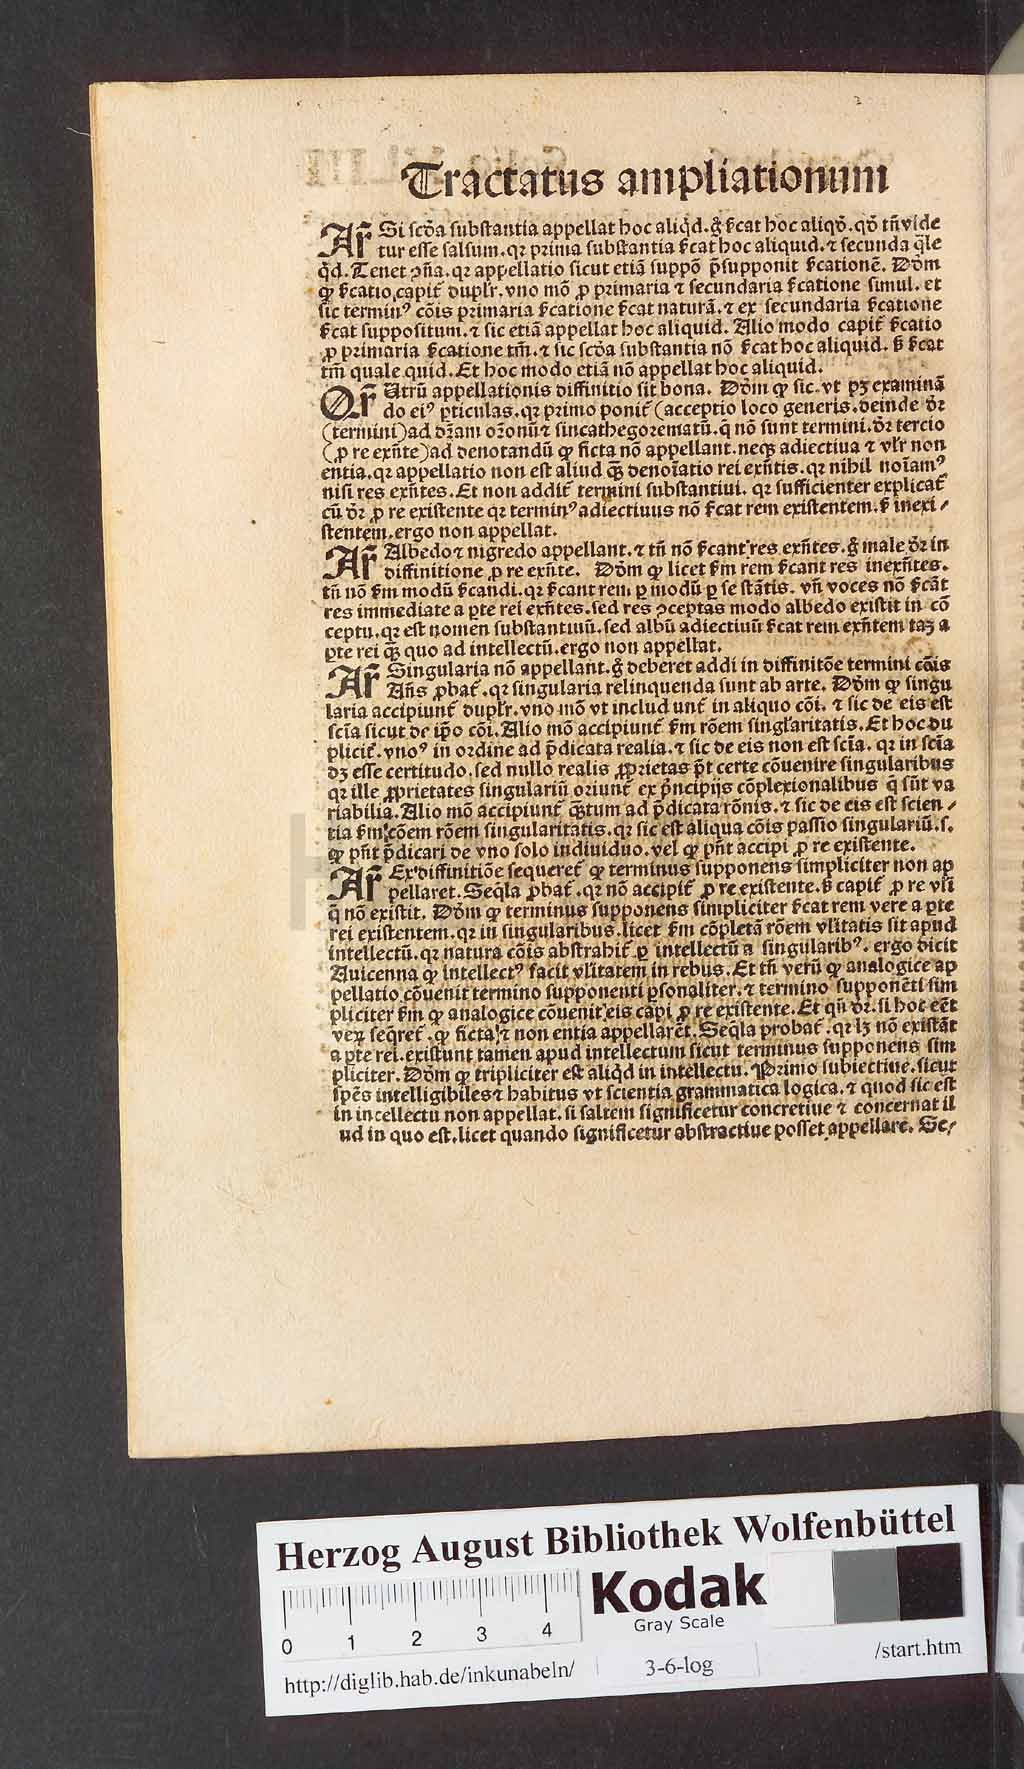 Tractatus ampliationum
Ar̄ Si scďa substantia appellat hoc aliqd. g̊ ſcat hoc aliqď. qď tñ vide
tur esse falsum. qꝛ prima substantia ſcat hoc aliquid. ⁊ secunda q̄le
qd. Tenet ꝯña. qꝛ appellatio sicut etiā suppō p̄supponit ſcationē. Dd̓m
ꝙ ſcatio capit̄ duplr̄. vno mō ꝓ primaria ⁊ secundaria ſcatione simul. et
sic terminꝰ cōis primaria ſcatione ſcat naturā. ⁊ ex secundaria ſcatione
ſcat suppositum. ⁊ sic etiā appellat hoc aliquid. Alio modo capit̄ ſcatio
ꝓ primaria ſcatione tm̄. ⁊ sic scďa substantia nō ſcat hoc aliquid. ß ſcat
tm̄ quale quid. Et hoc modo etiā nō appellat hoc aliquid.
Qr̄ Vtrū appellationis diffinitio sit bona. Dd̓m ꝙ sic. vt pꝫ examinā
do eiꝰ ꝑticulas. qꝛ primo ponit̄ (acceptio loco generis. deinde dr̄
(termini) ad dr̄am or̄onū ⁊ sincathegorematū. q̄ nō sunt termini. dr̄ tercio
(ꝓ re exñte) ad denotandū ꝙ ficta nō appellant. neqꝫ adiectiua ⁊ vlr̄ non
entia. qꝛ appellatio non est aliud qꝫ̄ denoīatio rei exñtis. qꝛ nihil noīamꝰ
nisi res exñtes. Et non addit̄ termini substantiui. qꝛ sufficienter explicat̄
cū dr̄ ꝓ re existente qꝛ terminꝰ adiectiuus nō ſcat rem existentem. ß inexi⸗
stentem. ergo non appellat.
Ar̄ Albedo ⁊ nigredo appellant. ⁊ tñ nō ſcant res exñtes. g̊ male dr̄ in
diffinitione ꝓ re exñte. Dd̓m ꝙ licet ſm rem ſcant res inexñtes.
tñ nō ſm modū ſcandi. qꝛ ſcant rem ꝑ modū ꝑ se stātis. vñ voces nō ſcāt
res immediate a ꝑte rei exñtes. sed res ꝯceptas modo albedo existit in cō
ceptu. qꝛ est nomen substantiuū. sed albū adiectiuū ſcat rem exñtem taꝫ a
ꝑte rei qꝫ̄ quo ad intellectū. ergo non appellat.
Ar̄ Singularia nō appellant. g̊ deberet addi in diffinitōe termini cōis
Añs ꝓbat̄. qꝛ singularia relinquenda sunt ab arte. Dd̓m ꝙ singu
laria accipiunt̄ duplr̄. vno mō vt includunt̄ in aliquo cōi. ⁊ sic de eis est
scīa sicut de ip̄o cōi. Alio mō accipiunt̄ ſm rōem singl̓aritatis. Et hoc du
plicit̄. vnoº in ordine ad p̄dicata realia. ⁊ sic de eis non est scīa. qꝛ in scīa
dꝫ esse certitudo. sed nullo realis ꝓprietas pōt certe cōuenire singularibus
qꝛ ille ꝓprietates singulariū oriunt̄ ex pͥncipijs cōplexionalibus q̄ sūt va
riabilia. Alio mō accipiunt̄ qꝫ̄tum ad p̄dicata rōnis. ⁊ sic de eis est scien⸗
tia ſm cōem rōem singularitatis. qꝛ sic est aliqua cōis passio singulariū. s.
ꝙ pñt p̄dicari de vno solo indiuiduo. vel ꝙ pñt accipi ꝓ re existente.
Ar̄ Ex diffinitiōe sequeret̄ ꝙ terminus supponens simpliciter non ap
pellaret. Seqla ꝓbat̄. qꝛ nō accipit̄ ꝓ re existente. ß capit̄ ꝓ re vl̓i
q̄ nō existit. Dd̓m ꝙ terminus supponens simpliciter ſcat rem vere a ꝑte
rei existentem. qꝛ in singularibus. licet ſm cōpletā rōem vl̓itatis sit apud
intellectū. qꝛ natura cōis abstrahit̄ ꝑ intellectū a singularibꝰ. ergo dicit
Auicenna ꝙ intellectꝰ facit vl̓itatem in rebus. Et tñ verū ꝙ analogice ap
pellatio cōuenit termino supponenti ꝑsonaliter. ⁊ termino supponēti sim
pliciter ſm ꝙ analogice cōuenit eis capi ꝓ re existente. Et qñ dr̄. si hoc eēt
veꝝ seqret̄. ꝙ ficta ⁊ non entia appellarēt. Seqla probat̄. qꝛ lꝫ nō existāt
a ꝑte rei. existunt tamen apud intellectum sicut terminus supponens sim
pliciter. Dd̓m ꝙ tripliciter est aliqd in intellectu. Primo subiectiue. sicut
spēs intelligibiles ⁊ habitus vt scientia grammatica logica. ⁊ quod sic est
in intellectu non appellat. si saltem significetur concretiue ⁊ concernat il
ud in quo est. licet quando significetur abstractiue posset appellare. Se⸗
Herzog August Bibliothek Wolfenbüttel
0 1 2 3 4
Kodak
Gray Scale
http://diglib.hab.de/inkunabeln/
3-6-log
/start.htm